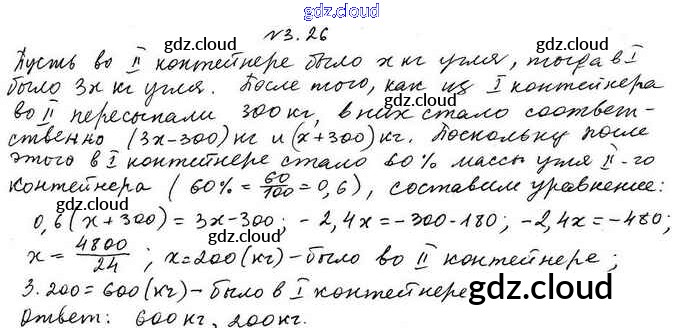 gdz.cloud
№3.26
gdz.cloud gdz.cloud
Пусть во II контейнере было x кг угля, тогда в I
было 3x кг угля. После того, как из I контейнера
gdz.cloud gdz.cloud
во II пересыпали 300 кг, в них стало соответ-
ственно (3x-300) кг и (x+300) кг. Поскольку после
gdz.cloud gdz.cloud
этого в I контейнере стало 60% массы угля II-го
контейнера (60% = 60/100 = 0,6), составим уравнение:
gdz.cloud gdz.cloud
0,6(x+300) = 3x-300; -2,4x = -300-180; -2,4x = -480;
gdz.cloud gdz.cloud
x = 4800/24; x=200 (кг) - было во II контейнере;
3.200 = 600 (кг) - было в I контейнере
gdz.cloud gdz.cloud
Ответ: 600 кг, 200 кг.